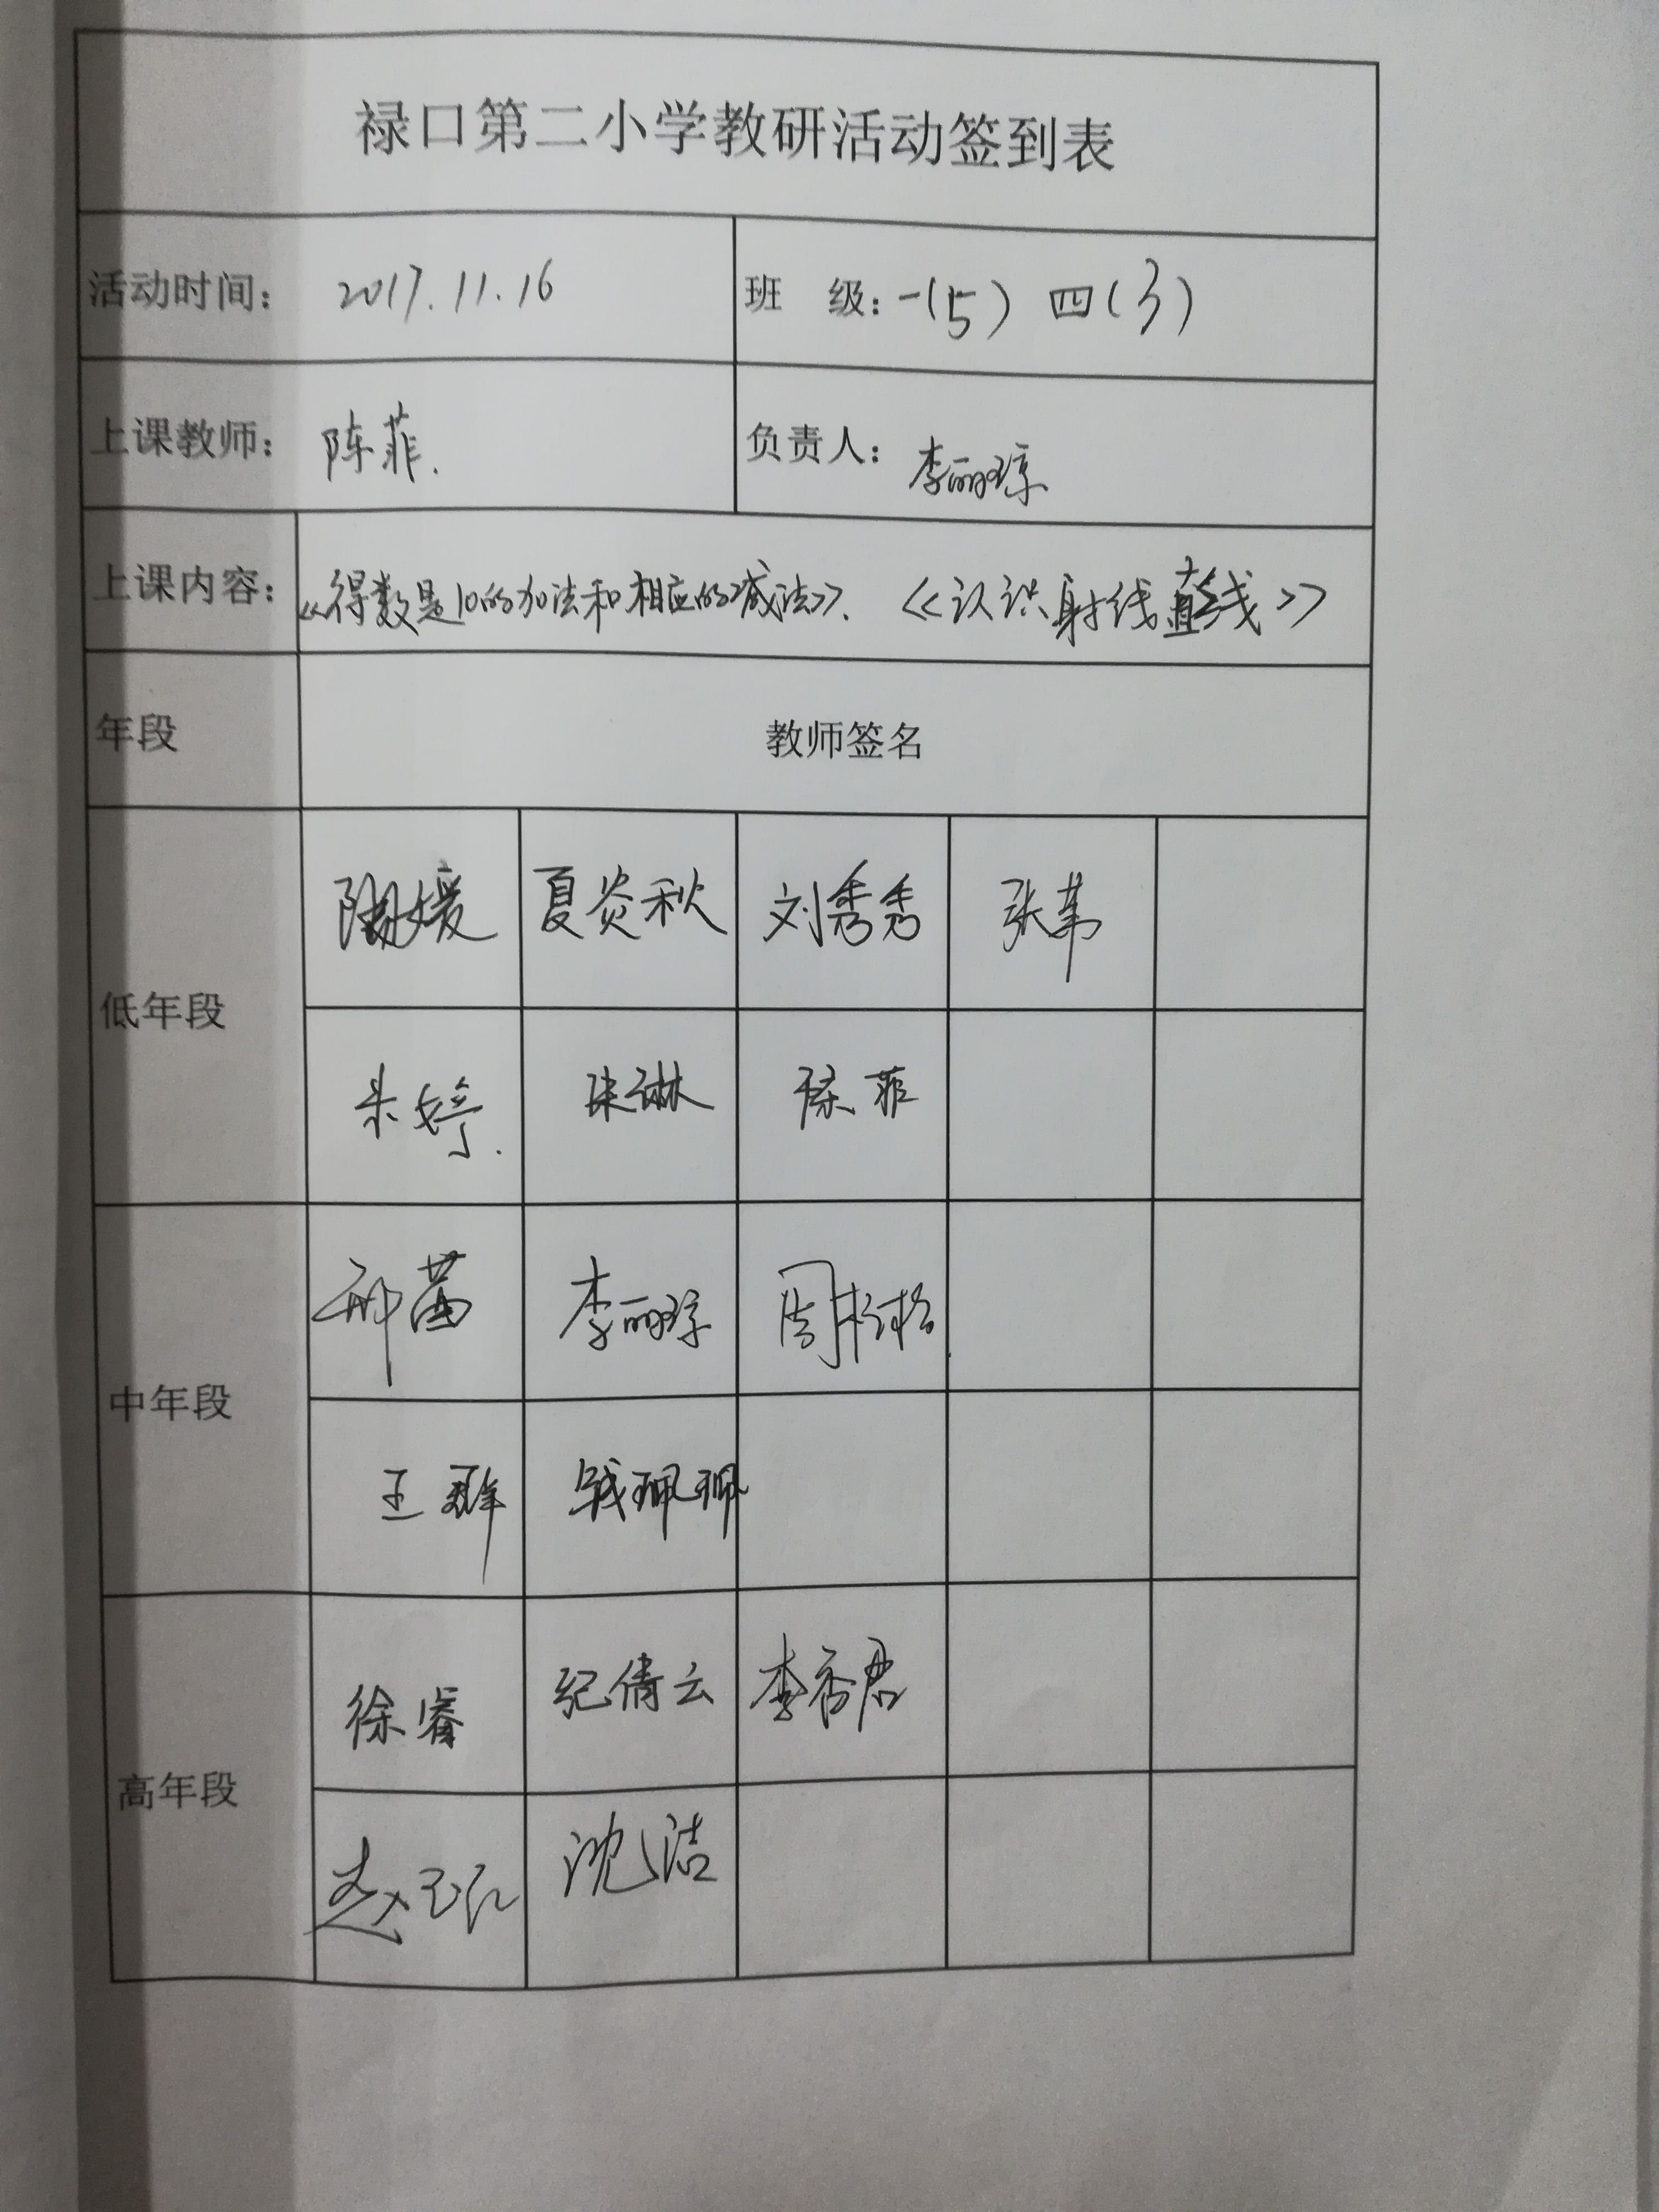 禄口第二小学教研活动签到表
活动时间： 2017.11.16 班 级：一(5) 四(3)
上课教师： 陈菲. 负责人： 李丽琼
上课内容：《得数是10的加法和相应的减法》. 《认识射线直线》
年段 教师签名
陶媛 夏炎秋 刘秀秀 张苇
低年段
朱婷. 朱琳 陈菲
邢茜 李丽琼 周
中年段
王群 钱珮珮
徐睿 纪倩云 李香君
高年段
赵玉红 沈洁